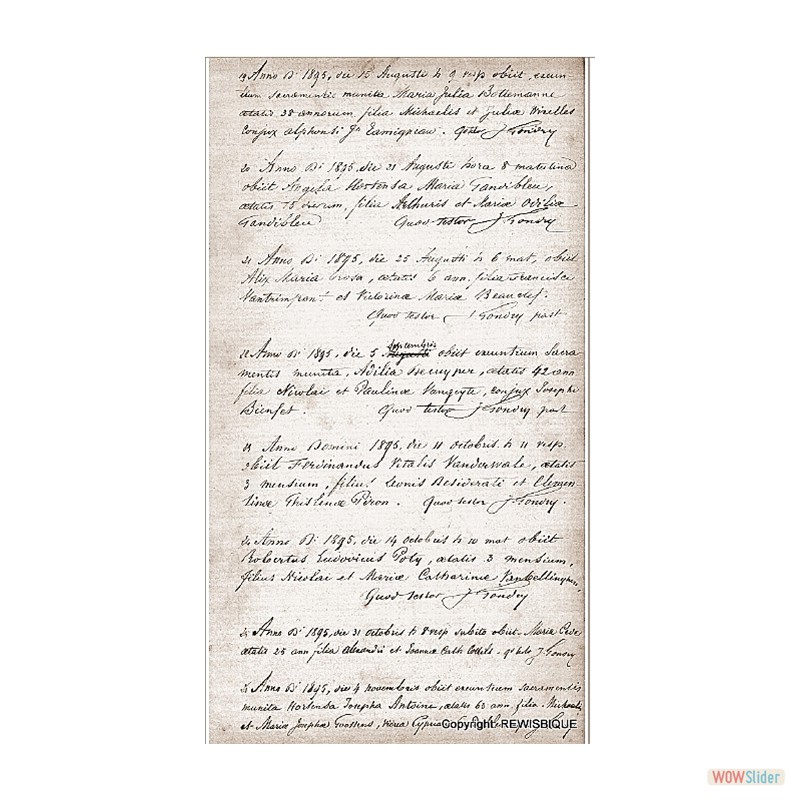 19 Anno Di 1895, die 15 Augusti h 9 vesp obiit, exeun
tium sacramentis munita Maria Julia Bottemanne
aetatis 38 annorum filia Michaelis et Juliae Wixelles
Conjux alphonsi Jn Lamigneau. Qtestor J. Gondry
20 Anno Di 1895, die 21 Augusti hora 8 matutina
obiit Angelia Hortensa Maria Gandibleu,
aetatis 15 dierum, filia Arthuris et Mariae Odiliae
Gandibleu Quod testor J. Gondry
21 Anno Di 1895, die 25 Augusti h 6 mat, obiit
Alix Maria rosa, aetatis 6 ann, filia Francisci
Vantrimpont et Victorinae Mariae Beauclef.
Quod testor J Gondry past
22 Anno Di 1895, die 5 septembris Augusti obiit exeuntium Sacra
mentis munita, Adilia Decuyper, aetatis 42 ann
filia Nicolai et Paulinae Vangeyte, conjux Josephi
Bienfet. Quod testor J Gondry past
23 Anno Domini 1895, die 11 octobris h 11 vesp
obiit Ferdinandus Vitalis Vanderwale, aetatis
3 mensium, filius Leonis Desiderati et Clemen
tinae Ghislenae Piron. Quod testor J. Gondry.
24 Anno Di 1895, die 14 octobris h 10 mat obiit
Robertus Ludovicus Poty, aetatis 3 mensium,
filius Nicolai et Mariae Catharinae VanBellinghen.
Quod testor J Gondry
25 Anno Di 1895, die 31 octobris h 8 vesp subito obiit Maria
aetatis 25 ann filia alexandri et Joannae Cath qd testo J. Gondry
26 Anno Di 1895, die 4 novembris obiit exeuntium sacramentis
munita Hortensa Josepha Antoine, aetatis 63 ann filia Michaelis
et Mariae Josephae Goossens, vidua
Copyright REWISBIQUE
WOWSlider